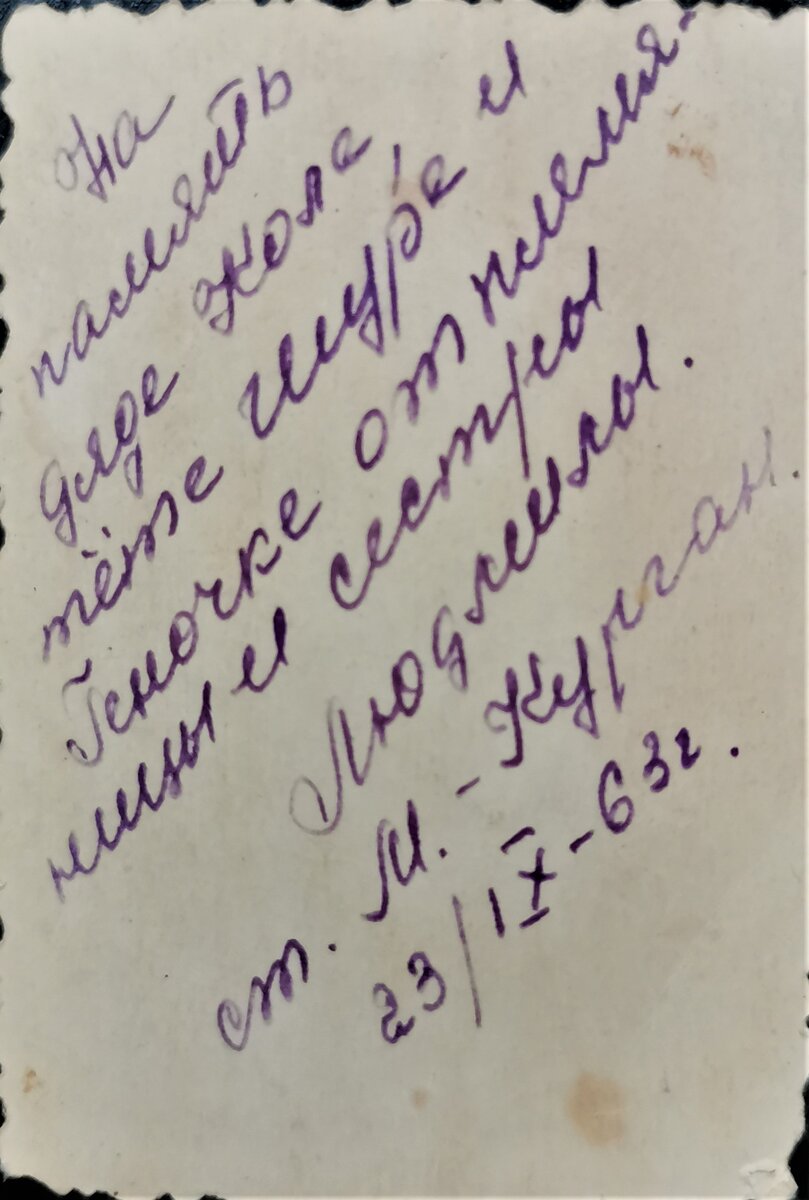 На
память
дяде Коле,
тёте шуре и
Геночке от племя-
ницы и сестры
Людмилы.
ст. М.-Курган.
23/IX-63г.